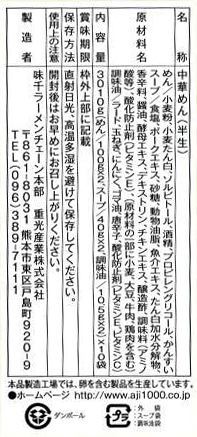 名称
中華めん(半生)
原材料名
めん/小麦粉、小麦たん白、ソルビトール、酒精、プロピレングリコール、かんすい
スープ/食塩、ポークエキス、砂糖、動物油脂、魚介エキス、たん白加水分解物、
香辛料、醤油、酵母エキス、デキストリン、チキンエキス、醸造酢、調味料(アミノ酸等)、
酸化防止剤(ビタミンE)、(原材料の一部に小麦、大豆、牛肉、鶏肉を含む)
調味油/ラード、玉ねぎ、にんにく、ゴマ油、唐辛子、酸化防止剤(ビタミンE、ビタミンC)
内容量
3010g(めん/100g×2、スープ/40g×2、調味油/10.5g×2)×10袋
賞味期限
枠外上部に記載
保存方法
直射日光、高温多湿を避けて保存してください。
使用上の注意
開封後はお早めにお召し上がりください。
製造者
味千ラーメンチェーン本部 重光産業株式会社
〒861-8031 熊本市東区戸島町920-9
TEL(096)389-7111
本品製造工場では、卵を含む製品を生産しています。
●ホームページ http://www.aji1000.co.jp
ダンボール
プラ
外袋
スープ袋
調味油袋